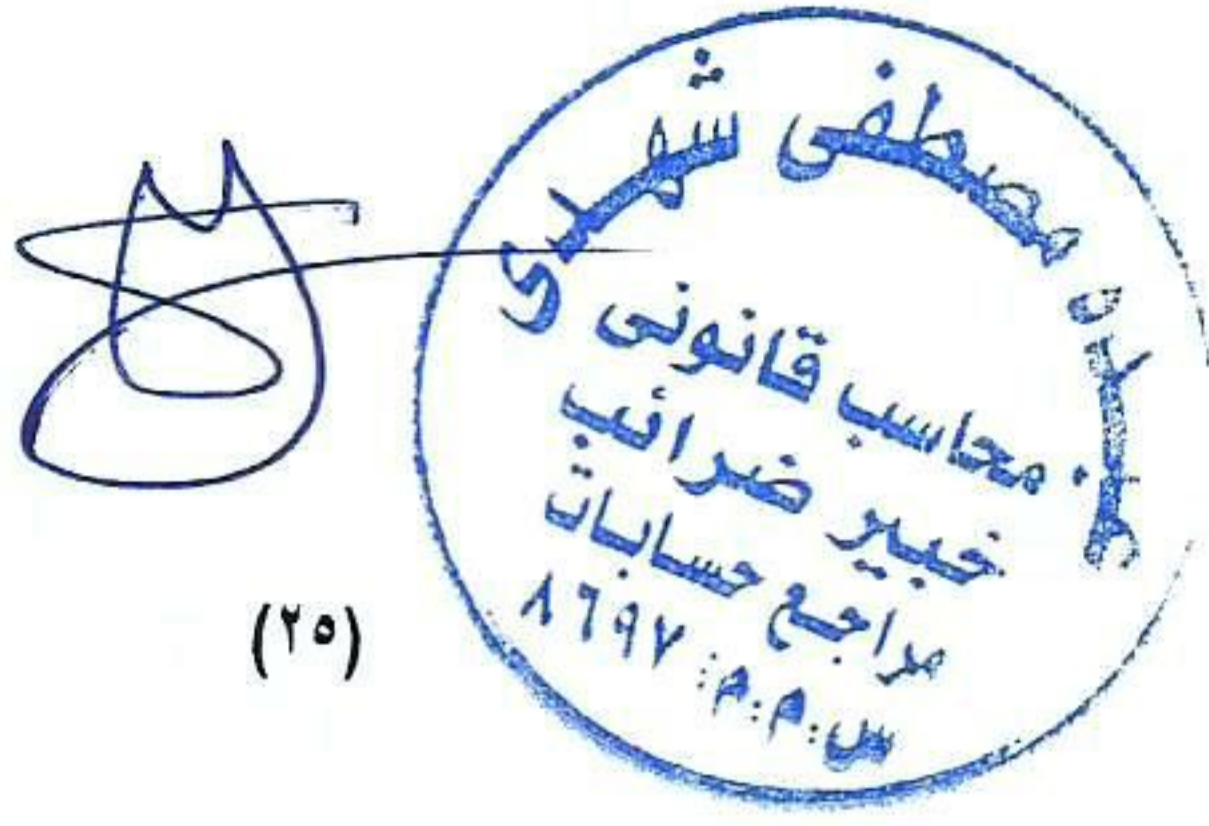 مصطفى شهدى
محاسب قانونى
خبير ضرائب
مراجع حسابات
س.م.م: ٨٦٩٧
(٢٥)